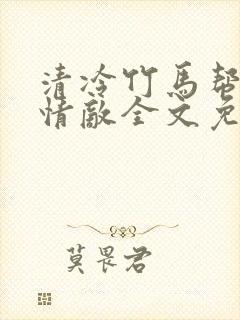 清冷竹馬幫
情敵全文免
莫畏君